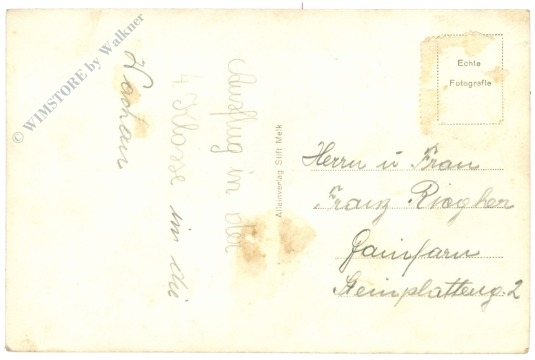 © WIMSTORE by Walkner
Ausflug in der
4 Klasse in die
Wachau
Alleinverlag Stift Melk
Echte
Fotografie
Herrn u Frau
Franz
Gainfarn
Steinplatteng. 2